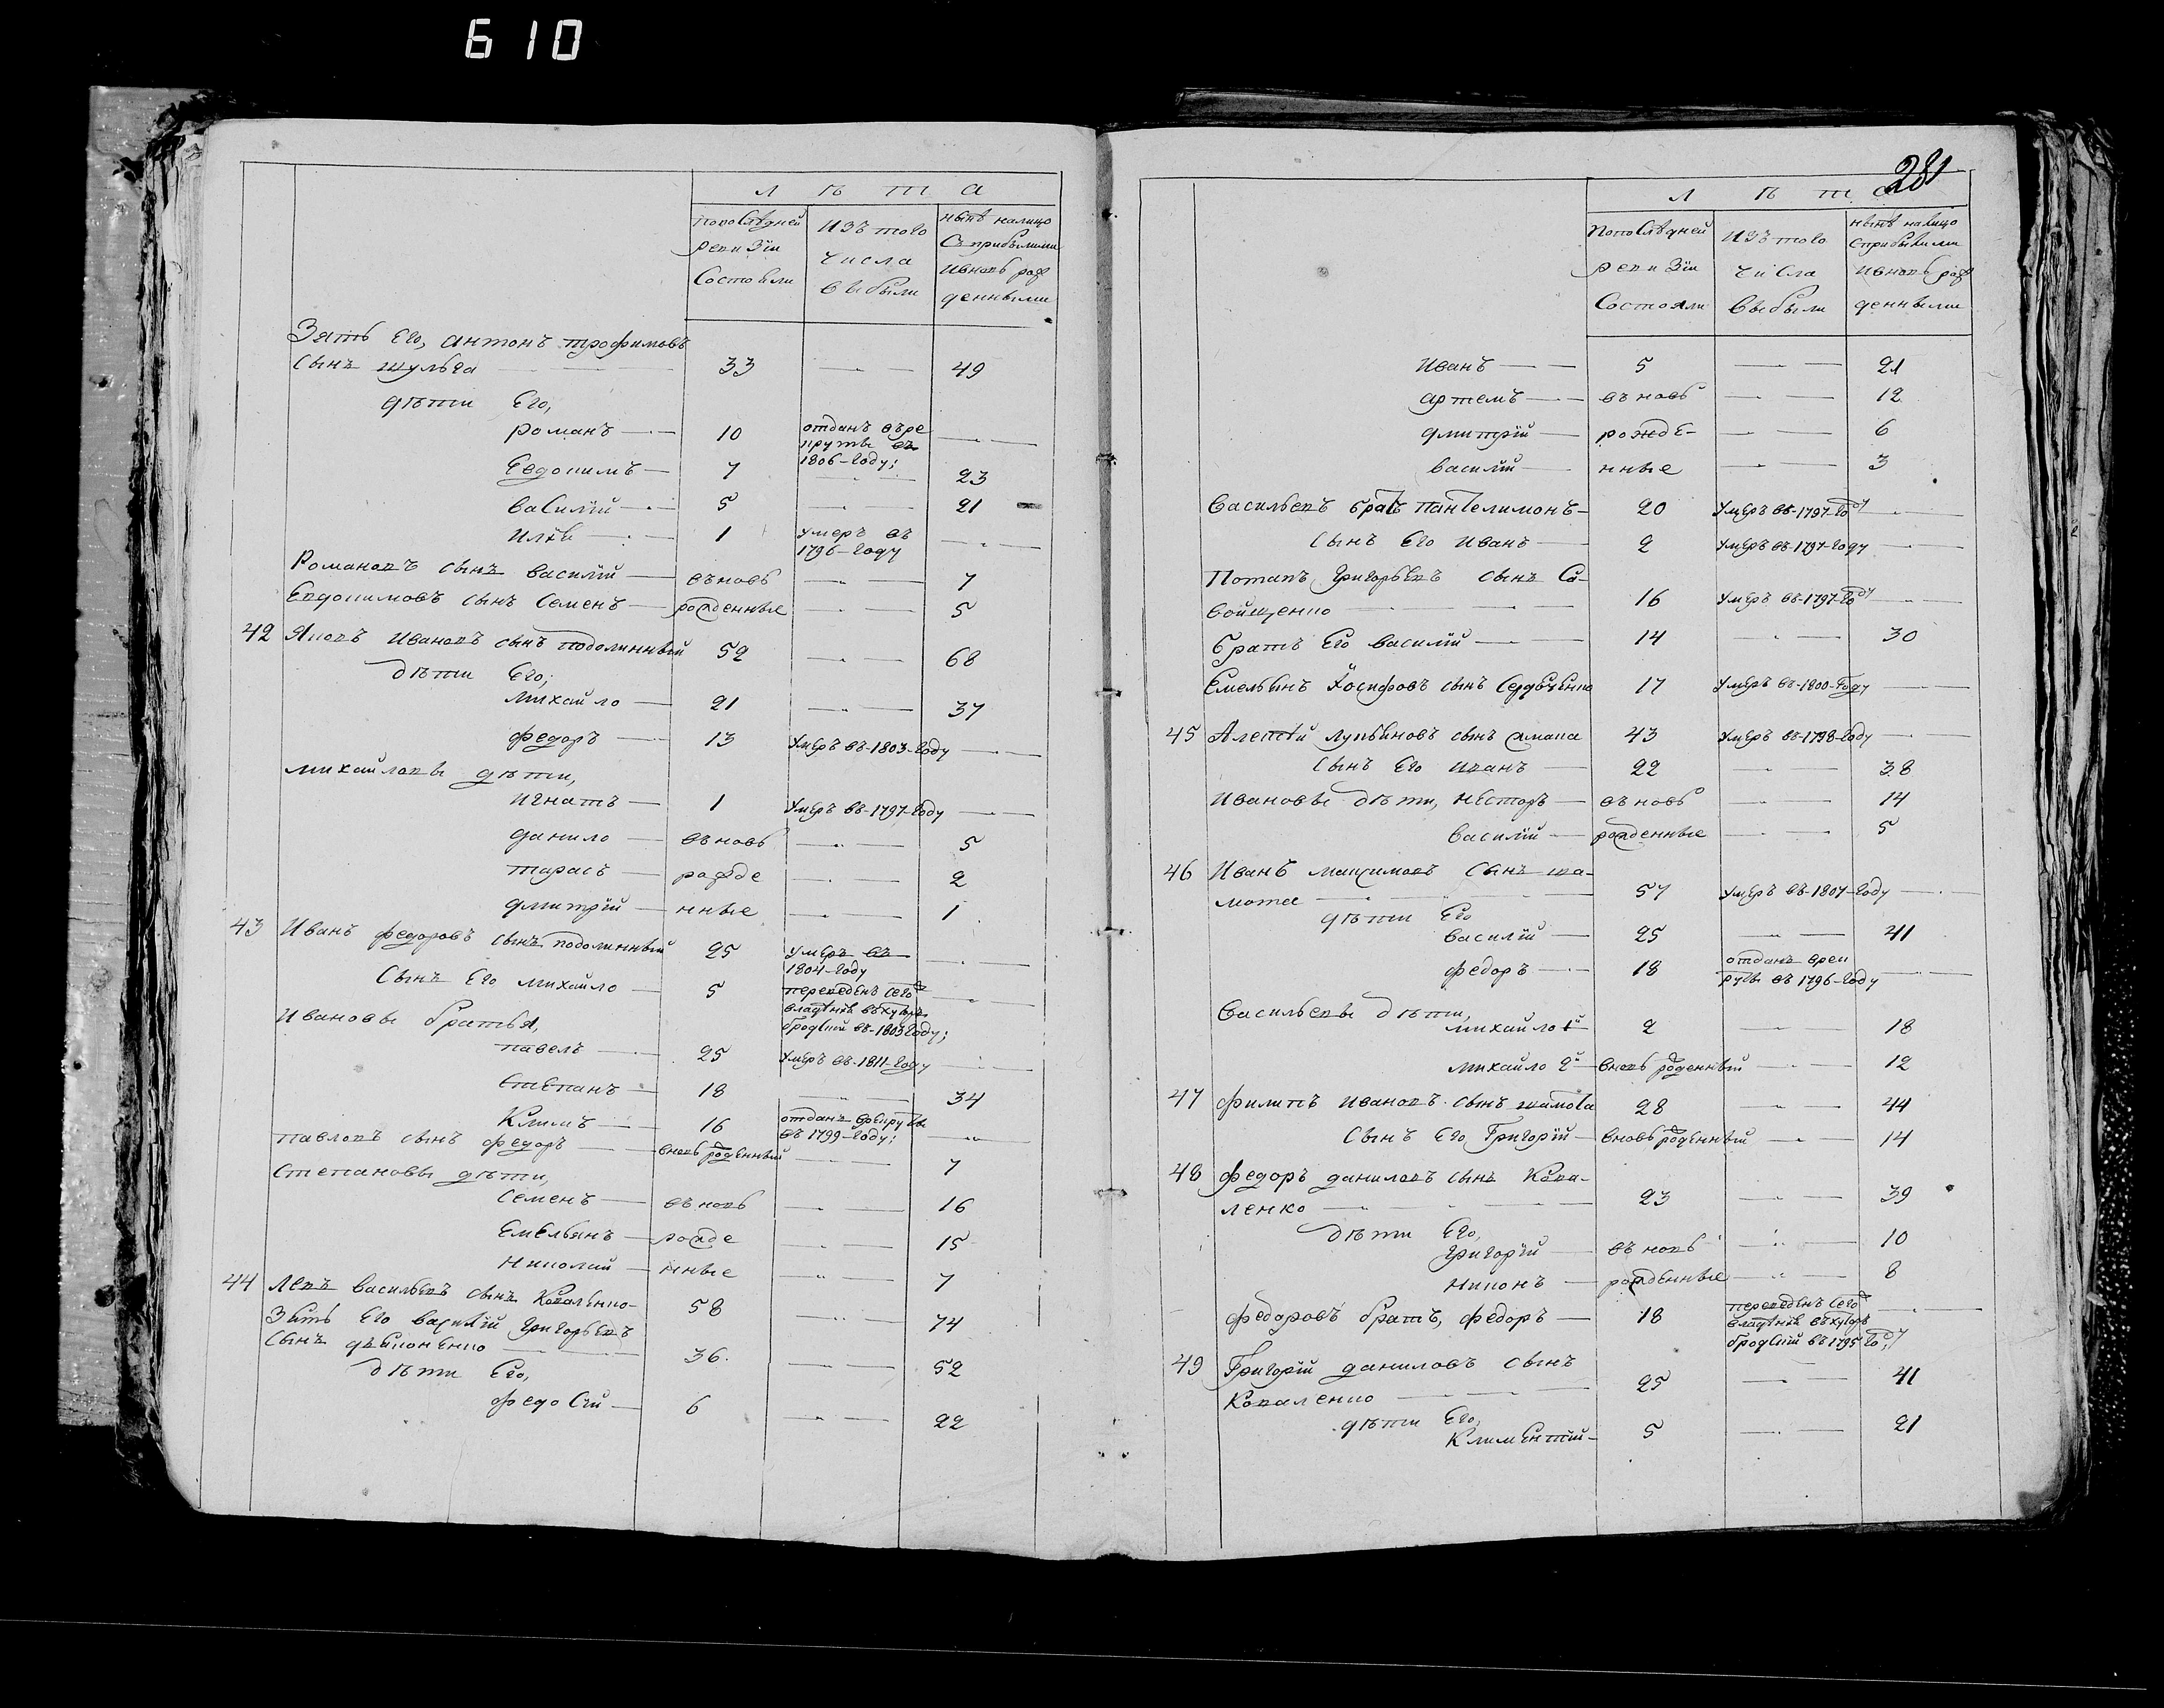 610
Л ѣ т а
пополѣдней
ревизіи
Состояли
изъ того
числа
выбыли
нынѣ налицо
Съприбылими
ивновь рож
денными
Зять Его, антонъ трофимовъ
сынъ шульга 33 49
дѣти Его,
романъ 10 отданъ въре
круты въ
1806-году;
Евдокимъ 7 23
василій 5 21
илья 1 умеръ въ
1796-году
Романовъ сынъ василій въновь 7
Евдокимовъ сынъ Семенъ рожденные 5
42 Яковъ Ивановъ сынъ подолинный 52 68
дѣти Его;
михайло 21 37
федоръ 13 умеръ въ-1803-году
михайловы дѣти,
игнатъ 1 умеръ въ-1797-году
данило въновь 5
тарасъ рожде 2
дмитрій нные 1
43 Иванъ федоровъ сынъ подолинный 25 умеръ въ
1804-году
Сынъ Его михайло 5 переведенъ сего
владѣнія въхуторъ
бродскій въ-1803 году;
Ивановы братья,
павелъ 25 умеръ въ-1811-году
степанъ 18 34
Климъ 16 отданъ врекруты
въ 1799-году;
павловъ сынъ федоръ вновь рожденный 7
Степановы дѣти,
Семенъ въновь 16
Емельянъ рожде 15
Николай нные 7
44 Левъ васильевъ сынъ Коваленко 58 74
Зять Его василій григорьевъ
сынъ дьяконенко 36. 52
дѣти Его,
федосій 6 22
281
Л ѣ т а
Пополѣдней
ревизіи
Состояли
изъ того
числа
выбыли
нынѣ налицо
сприбылими
ивновь рож
денными
иванъ 5 21
артемъ въновь 12
дмитрій рожде- 6
василій нные 3
Васильевъ братъ пантелимонъ 20 умеръ въ-1797-году
сынъ Его иванъ 2 умеръ въ-1797-году
Потапъ григорьевъ сынъ Са-
войщенко 16 умеръ въ-1797-году
братъ Его василій 14 30
Емельянъ Іосифовъ сынъ Сердюченко 17 умеръ въ-1800-году
45 Алексѣй лукьяновъ сынъ 43 умеръ въ-1798-году
сынъ Его иванъ 22 38
Ивановы дѣти, несторъ въновь 14
василій рожденные 5
46 Иванъ максимовъ сынъ ша-
мота 57 умеръ въ-1807-году
дѣти Его
василій 25 41
федоръ 18 отданъ врек
руты въ 1796-году
Васильевы дѣти,
михайло 1й 2 18
михайло 2й вновь рожденный 12
47 филипъ ивановъ сынъ шамота 28 44
сынъ Его, Григорій вновь рожденный 14
48 федоръ даниловъ сынъ Кова-
ленко 23 39
дѣти Его,
григорій въновь 10
никонъ рожденные 8
федоровъ братъ, федоръ 18 переведенъ сего
владѣнія въхуторъ
бродскій въ 1795 году;
49 Григорій даниловъ сынъ
Коваленко 25 41
дѣти Его,
Климентій 5 21